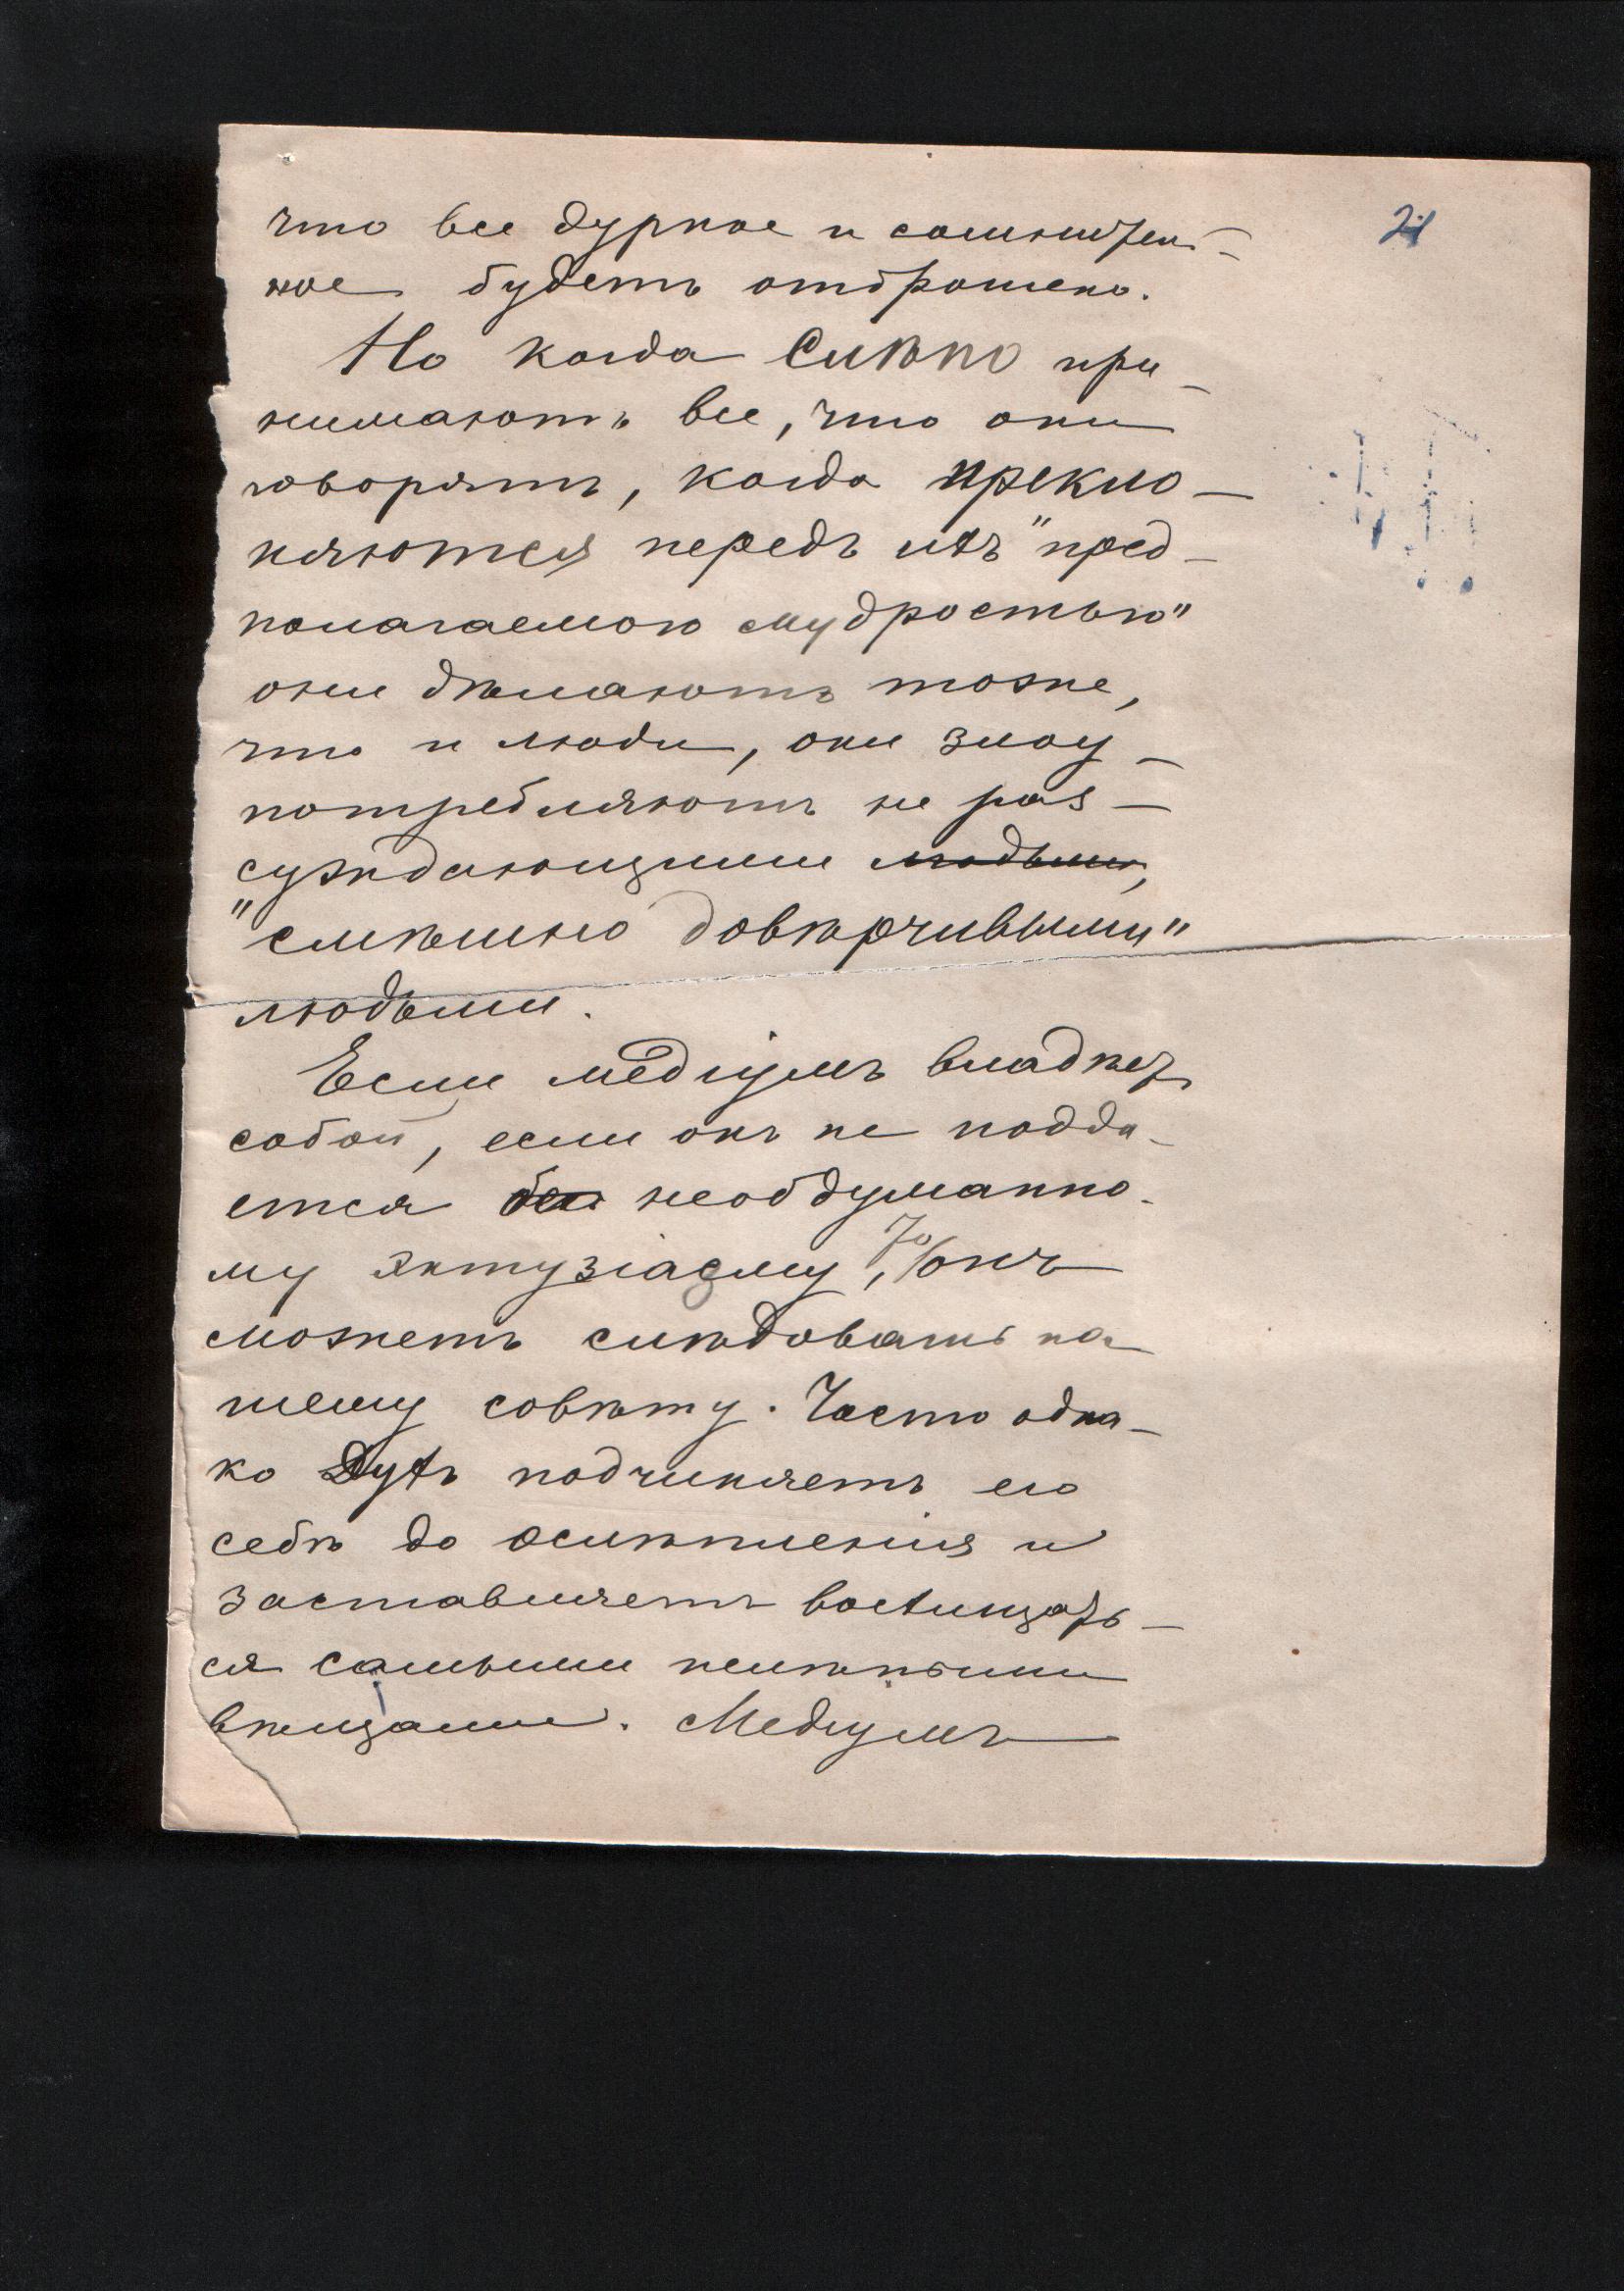 21
что все дурное и сомнитель-
ное будетъ отброшено.
Но когда слѣпо при-
нимаютъ все, что они
говорятъ, когда прекло-
няются передъ ихъ "пред-
полагаемою мудростью"
они дѣлаютъ тоже,
что и люди, они злоу-
потребляютъ не раз-
суждающими людьми,
"смѣшно довѣрчивыми"
людьми.
Если медіумъ владѣетъ
собой, если онъ не подда-
ется без необдуманно-
му энтузіазму, то онъ
можетъ слѣдовать на-
шему совѣту. Часто одна-
ко Духъ подчиняетъ его
себѣ до ослѣпленія и
заставляетъ восхищать-
ся самыми нелѣпыми
вѣщами. Медіумъ